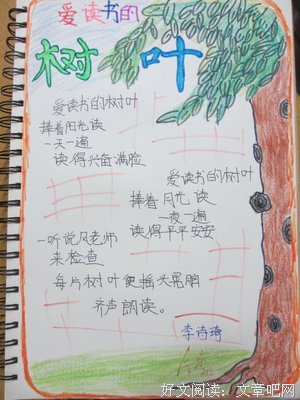 爱读书的
树叶
爱读书的树叶
捧着阳光读
一天一遍
读得兴奋满脸
爱读书的树叶
捧着月光读
一夜一遍
读得平平安安
一听说风老师
来检查
每片树叶便摇头晃脑
齐声朗读。
李诗琦
好文阅读：文章吧网